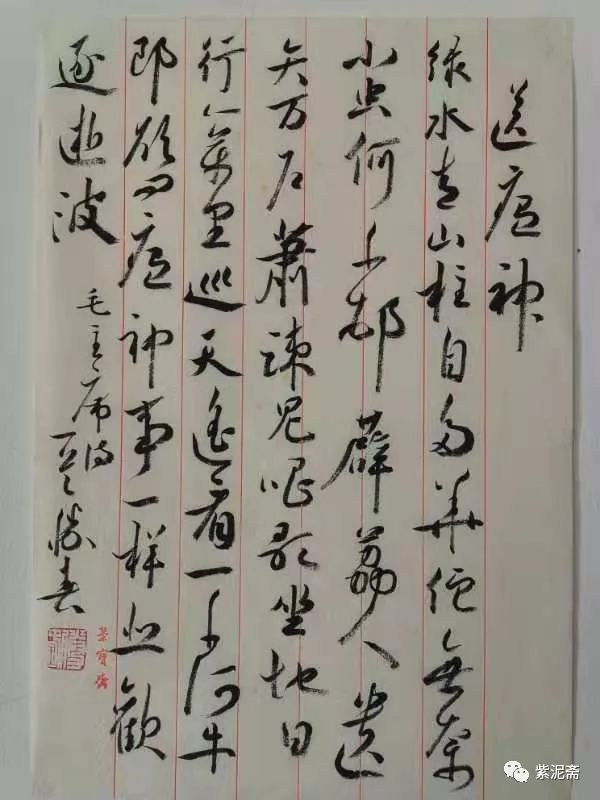 送瘟神
绿水青山枉自多華佗無奈
小虫何千村薜荔人遗
矢万户蕭疎鬼唱歌坐地日
行八萬里巡天遥看一千河牛
郎欲问瘟神事一样悲歡
逐逝波
毛主席诗
榮寶齋
紫泥斋